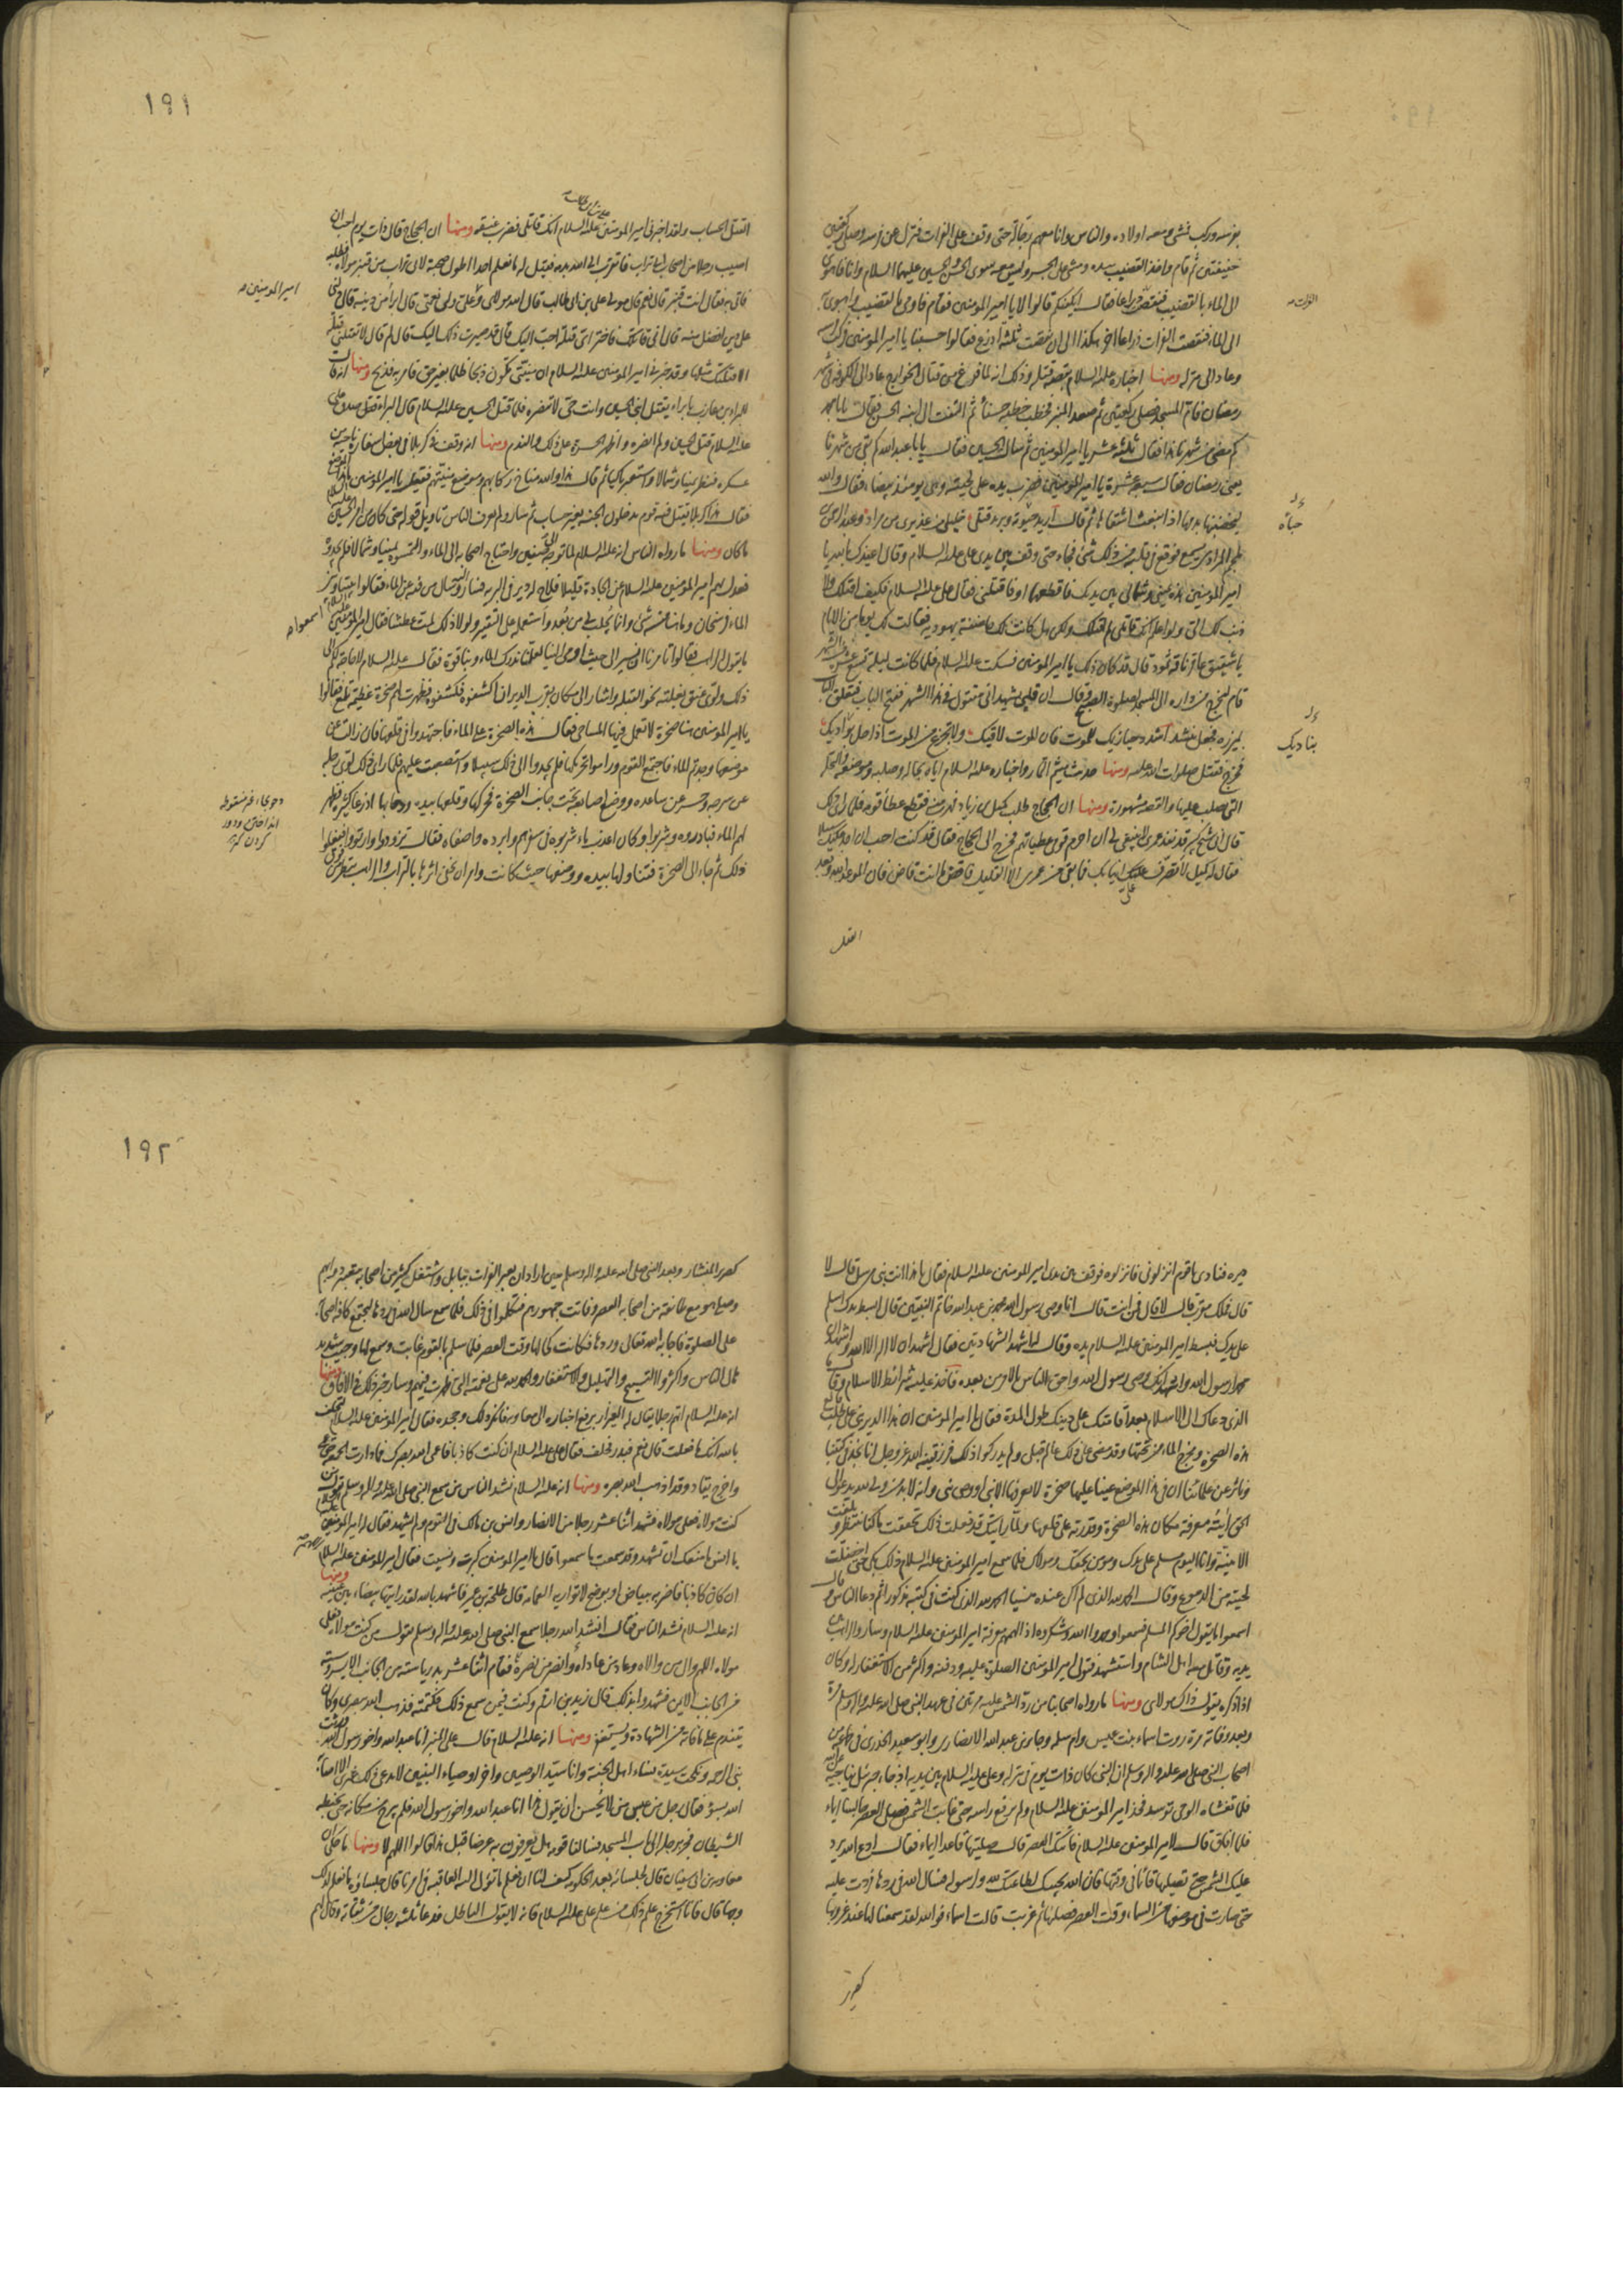 بفرسه وركب فمشى ومعه اولاده والناس وانا معهم رجالة حتى وقف على الفرات فنزل عن فرسه وصلى ركعتين
خفيفتين ثم قام واخذ القضيب بيده ومشى على الجسر وليس معه سوى الحسن والحسين عليهما السلام وانا فاهوى
الى الماء بالقضيب فنقص ذراعا فقال ايكفيكم قالوا لا يا امير المؤمنين فقام فاومى بالقضيب واهوى به
الفرات
الى الماء فنقصت الفرات ذراعا آخر هكذا الى ان نقصت ثلثة اذرع فقالوا حسبنا يا امير المؤمنين فركب فرسه
وعاد الى منزله ومنها اخباره عليه السلام بقصة قتله وذلك انه لما فرغ من قتال الخوارج عاد الى الكوفة فى شهر
رمضان فامّ المسجد فصلى ركعتين ثم صعد المنبر فخطب خطبة حسنا ثم التفت الى ابنه الحسن فقال يابا محمد
كم مضى من شهرنا هذا فقال ثلثة عشر يا امير المؤمنين ثم سال الحسين فقال يابا عبدالله كم بقى من شهرنا
يعنى رمضان فقال سبع عشرة يا امير المؤمنين فضرب يده على لحيته وهى يومئذ بيضاء فقال والله
ليخضبنها بدمها اذ انبعث اشقاها ثم قال اريد حيوته ويريد قتلى خليلى من عذيرى من مراد وعبد الرحمن بن
حباه
ملجم المرادى يسمع فوقع فى قلبه من ذلك شئ فجاء حتى وقف بين يدى على عليه السلام وقال اعيذك بالله يا
امير المؤمنين هذه يمينى وشمالى بين يديك فاقطعهما او فاقتلنى فقال على عليه السلام فكيف اقتلك ولا
ذنب لك الىّ ولو اعلم انك قاتلى لم اقتلك ولكن هل كانت لك حاضنة يهودية فقالت لك يوما من الايام
يا شقيق عاقر ناقة ثمود قال قد كان ذلك يا امير المؤمنين فسكت عليه السلام فلما كانت ليلة تسع عشرة من الشهر
قام ليخرج من داره الى المسجد لصلوة الصبح وقال ان قلبى يشهد انى مقتول فى هذا الشهر ففتح الباب فتعلق الباب
بميزره فجعل ينشد اشدد حيازيمك للموت فان الموت لاقيك ولا تجزع من الموت اذا حل بواديك
بناديك
فخرج فقتل صلوات الله عليه ومنها حديث ميثم التمار واخباره عليه السلام اياه بحاله وصلبه وموضعه والنخلة
التى يصلب عليها والقصة مشهورة ومنها ان الحجاج طلب كميل بن زياد فهرب منه فقطع عطا قومه فلما راى ذلك
قال انى شيخ كبير قد نفد عمرى لا ينبغى لى ان احرم قومى عطياتهم فخرج الى الحجاج فقال قد كنت احب ان اجد عليك سبيلا
فقال له كميل لا تصرف على انيابك فما بقى من عمرى الا القليل فاقض ما انت قاض فان الموعد لله وبعد
القتل
١٩١
القتل الحساب ولقد اخبرنى امير المؤمنين على بن ابى طالب عليه السلام انك قاتلى فضرب عنقه ومنها ان الحجاج قال ذات يوم احب ان
اصيب رجلا من اصحاب ابى تراب فاتقرب الى الله بدمه فقيل له ما نعلم احدا اطول صحبة لابى تراب من قنبر مولاه فطلبه
فاتى به فقال انت قنبر قال نعم قال مولى على بن ابى طالب قال الله مولاى وعلى ولى نعمتى قال ابرأ من دينه قال دلنى
امير المؤمنين
على دين افضل منه قال انى قاتلك فاختر اى قتلة احب اليك قال قد صيرت ذلك اليك قال لم قال لا تقتلنى قتلة
الا قتلتك مثلها وقد خبرنى امير المؤمنين عليه السلام ان منيتى تكون ذبحا ظلما بغير حق فامر به فذبح ومنها انه قال
للبراء بن عازب يا براء يقتل ابنى الحسين وانت حى لا تنصره فلما قتل الحسين عليه السلام قال البراء صدق على
عليه السلام قتل الحسين ولم انصره واظهر الحسرة على ذلك والندم ومنها انه وقف فى كربلا فى بعض اسفاره ناحية من
عسكره فنظر يمينا وشمالا واستعبر باكيا ثم قال هذا والله مناخ ركابهم وموضع منيتهم فقيل يا امير المؤمنين ما هذا الموضع
فقال هذا كربلا يقتل فيه قوم يدخلون الجنة بغير حساب ثم سار ولم يعرف الناس تاويل قوله حتى كان من امر الحسين عليه السلام
ما كان ومنها ما رواه الناس انه عليه السلام لما توجه الى صفين واحتاج اصحابه الى الماء والتمسوه يمينا وشمالا فلم يجدوه
فعدل بهم امير المؤمنين عليه السلام عن الجادة قليلا فلاح له دير فى البرية فسار وسال من فيه عن الماء فقالوا بيننا وبين
الماء فرسخان وما هنا منه شئ وانما يجلب لى من بعد واستعمله على التقتير ولولا ذلك لمت عطشا فقال امير المؤمنين عليه السلام اسمعوا
ما يقول الراهب فقالوا تامرنا ان نسير الى حيث اومى الينا لعلنا ندرك الماء وبنا قوة فقال عليه السلام لا حاجة لكم الى
ذلك ولوى عنق بغلته نحو القبلة واشار الى مكان بقرب الدير ان اكشفوه فكشفوه فظهرت لهم صخرة عظيمة تلمع فقالوا
يا امير المؤمنين هنا صخرة لا تعمل فيها المساحى فقال هذه الصخرة على الماء فاجتهدوا فى قلعها فان زالت عن
موضعها وجدتم الماء فاجتمع القوم وراموا تحريكها فلم يجدوا الى ذلك سبيلا واستصعبت عليهم فلما راى ذلك لوى رجله
عن سرجه وحسر عن ساعده ووضع اصابعه تحت جانب الصخرة فحركها وقلعها بيده ودحا بها اذرعا كثيرة فظهر
لهم الماء فبادروه وشربوا وكان اعذب ماء شربوه فى سفرهم وابرده واصفاه فقال تزودوا وارتووا ففعلوا
ذلك ثم جاء الى الصخرة فتناولها بيده ووضعها حيث كانت وامر ان يعفى اثرها بالتراب والراهب ينظر من فوق
١٩٢
ديره فنادى يا قوم انزلونى فانزلوه فوقف بين يدى امير المؤمنين عليه السلام فقال يا هذا انت نبى مرسل قال لا
قال فملك مقرب قال لا قال فمن انت قال انا وصى رسول الله محمد بن عبد الله خاتم النبيين قال ابسط يدك اسلم
على يديك فبسط امير المؤمنين عليه السلام يده وقال له اشهد الشهادتين فقال اشهد ان لا اله الا الله واشهد ان
محمدا رسول الله واشهد انك وصى رسول الله واحق الناس بالامر من بعده فاخذ عليه شرائط الاسلام وقال له ما
الذى دعاك الى الاسلام بعد اقامتك على دينك طول المدة فقال يا امير المؤمنين ان هذا الدير بنى على طلب قالع
هذه الصخرة ومخرج الماء من تحتها وقد مضى على ذلك عالم قبلى ولم يدركوا ذلك فرزقنيه الله عز وجل انا نجد فى كتبنا
وناثر عن علمائنا ان فى هذا الموضع عينا عليها صخرة لا يعرفها الا نبى او وصى نبى وانه لا بد من ولى لله يدعو الى
الحق آيته معرفة مكان هذه الصخرة وقدرته على قلعها ولما رايتك قد فعلت ذلك تحققت ما كنا ننتظره وبلغت
الامنية وانا اليوم مسلم على يدك ومؤمن بحقك ومولاك فلما سمع امير المؤمنين عليه السلام ذلك بكى حتى اخضلت
لحيته من الدموع وقال الحمد لله الذى لم اكن عنده منسيا الحمد لله الذى كنت فى كتبه مذكورا ثم دعا الناس وقال
اسمعوا ما يقول اخوكم المسلم فسمعوا وحمدوا الله وشكروه اذ الهمهم معرفة امير المؤمنين عليه السلام وسار والراهب بين
يديه وقاتل معه اهل الشام واستشهد فتولى امير المؤمنين الصلوة عليه ودفنه واكثر من الاستغفار له وكان
اذا ذكره يقول ذاك مولاى ومنها ما رواه اصحابنا من ردّ الشمس عليه مرتين فى عهد النبى صلى الله عليه وآله وسلم مرة
وبعد وفاته مرة روت اسماء بنت عميس وام سلمة وجابر بن عبد الله الانصارى وابو سعيد الخدرى فى جماعة من
اصحاب النبى صلى الله عليه وآله وسلم ان النبى كان ذات يوم فى منزله وعلى عليه السلام بين يديه اذ جاء جبرئيل يناجيه عن الله
فلما تغشاه الوحى توسد فخذ امير المؤمنين عليه السلام ولم يرفع راسه حتى غابت الشمس فصلى العصر جالسا ايماء
فلما افاق قال لامير المؤمنين عليه السلام فاتتك العصر قال صليتها قاعدا ايماء فقال ادع الله يرد
عليك الشمس حتى تصليها قائما فى وقتها فان الله يجيبك لطاعتك لله ولرسوله فسال الله فى ردها فردت عليه
حتى صارت فى موضعها من السماء وقت العصر فصلاها ثم غربت قالت اسماء فوالله لقد سمعنا لها عند غروبها
كصرير
كصرير المنشار وبعد النبى صلى الله عليه وآله وسلم حين اراد ان يعبر الفرات ببابل واشتغل كثير من اصحابه بتعبير دوابهم
وصلى هو مع طائفة من اصحابه العصر وفاتت جمهورهم فتكلموا فى ذلك فلما سمع سال الله فى ردها ليجتمع كافة اصحابه
على الصلوة فاجابه الله تعالى وردها فكانت كحالها وقت العصر فلما سلم بالقوم غابت وسمع لها وجيب شديد
هال الناس واكثروا التسبيح والتهليل والاستغفار والحمد لله على نعمته التى ظهرت فيهم وسار خبر ذلك فى الآفاق ومنها
انه عليه السلام اتهم رجلا يقال له العيزار برفع اخباره الى معاوية فانكر ذلك وجحده فقال امير المؤمنين عليه السلام اتحلف
بالله انك ما فعلت قال نعم فبدر فحلف فقال على عليه السلام ان كنت كاذبا فاعمى الله بصرك فما دارت الجمعة حتى عمى
واخرج يقاد وقد اذهب الله بصره ومنها انه عليه السلام نشد الناس من سمع النبى صلى الله عليه وآله وسلم يقول من
كنت مولاه فعلى مولاه فشهد اثنا عشر رجلا من الانصار وانس بن مالك فى القوم ولم يشهد فقال له امير المؤمنين عليه السلام
يا انس ما منعك ان تشهد وقد سمعت ما سمعوا قال يا امير المؤمنين كبرت ونسيت فقال امير المؤمنين عليه السلام
ان كان كاذبا فاضربه ببياض او بوضح لا تواريه العمامة قال طلحة بن عمير فاشهد بالله لقد رايتها بيضاء بين عينيه ومنها
انه عليه السلام نشد الناس فقال انشد الله رجلا سمع النبى صلى الله عليه وآله وسلم يقول من كنت مولاه فعلى
مولاه اللهم وال من والاه وعاد من عاداه وانصر من نصره فقام اثنا عشر بدريا ستة من الجانب الايسر وستة
من الجانب الايمن فشهدوا بذلك قال زيد بن ارقم وكنت فيمن سمع ذلك فكتمته فذهب الله ببصرى وكان
يتندم على ما فاته من الشهادة ويستغفر ومنها انه عليه السلام قال على المنبر انا عبد الله واخو رسول الله ورثت
نبى الرحمة ونكحت سيدة نساء اهل الجنة وانا سيد الوصيين وآخر اوصياء النبيين لا يدعى ذلك غيرى الا اصابه
الله بسوء فقال رجل من عبس من لا يحسن ان يقول هذا انا عبد الله واخو رسول الله فلم يبرح من مكانه حتى تخبطه
الشيطان فجر برجله الى باب المسجد فسالنا قومه هل يعرفون به عرضا قبل هذا قالوا اللهم لا ومنها ما حكى ان
معاوية بن ابى سفيان قال لجلسائه بعد الحكومة كيف لنا ان نعلم ما تؤل اليه العاقبة فى امرنا قال جلساؤه ما نعلم لذلك
وجها قال فانا استخرج علم ذلك من علم على عليه السلام فانه لا يقول الباطل فدعا ثلثة رجال من ثقاته وقال لهم